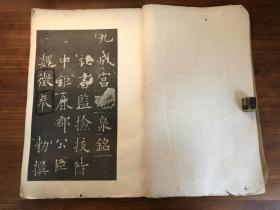 九成宮泉銘
書監檢校侍
中鉅鹿郡公臣
魏徵奉 勅撰